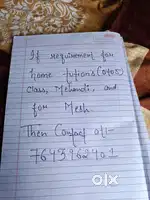 If requirement for
home tutions (0 to 5)
class, Mehendi, and
for Mesh
Then Contact at:-
7645962401
OLX